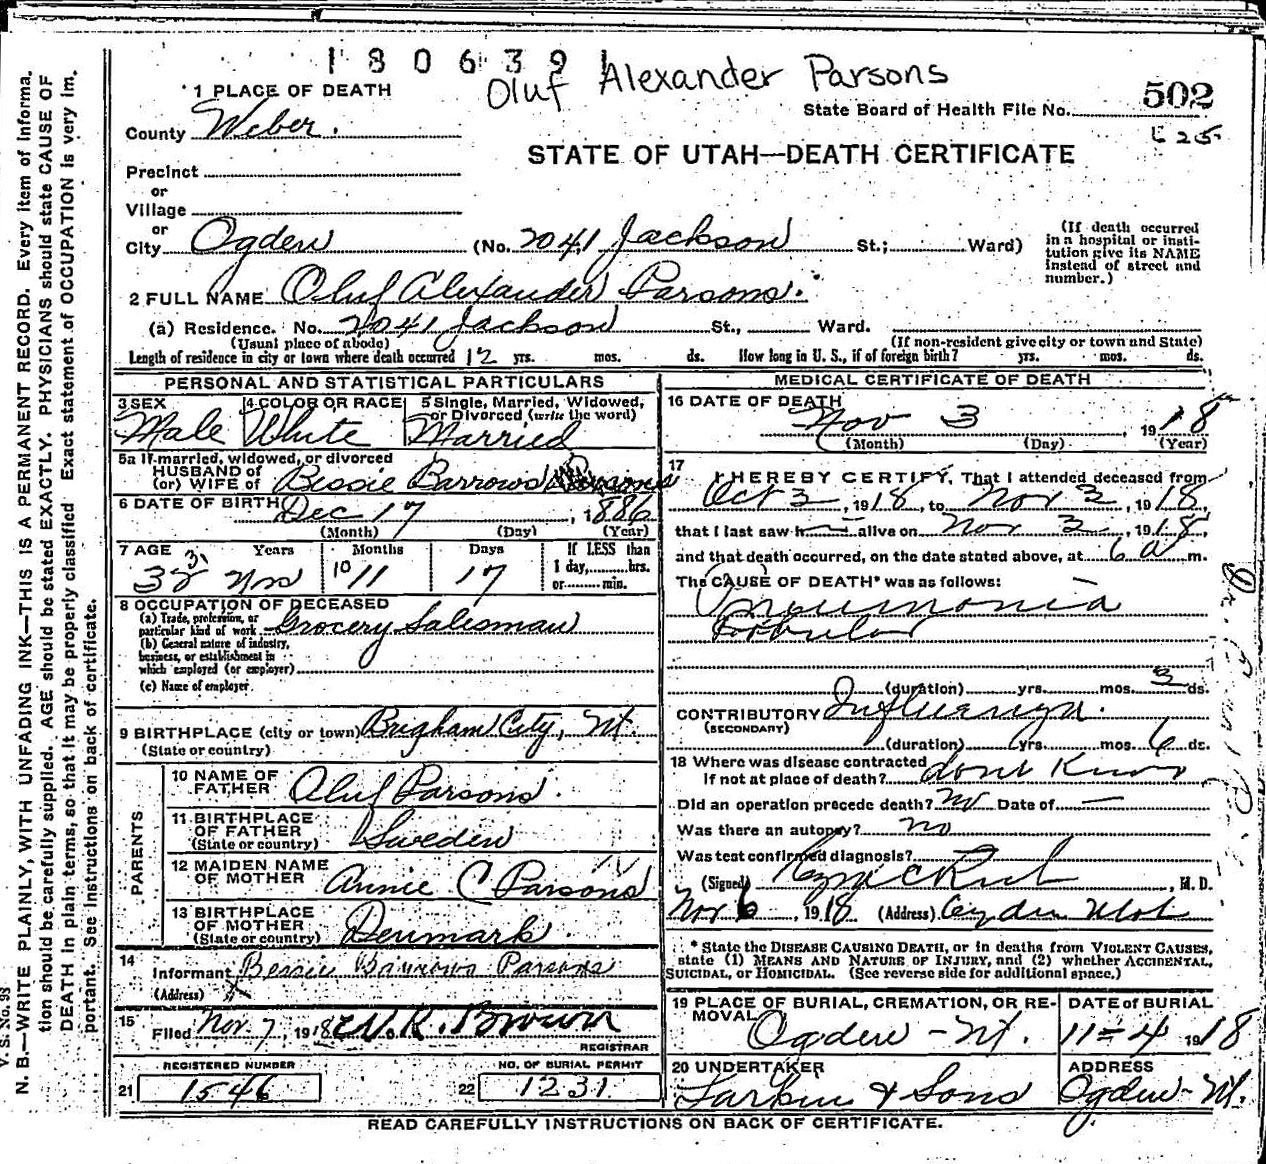 1 8 0 6 3 9 1
Oluf Alexander Parsons
1 PLACE OF DEATH
State Board of Health File No. 502
County Weber.
625
STATE OF UTAH—DEATH CERTIFICATE
Precinct
or
Village
or
City Ogden (No. 2041 Jackson St.; Ward)
(If death occurred in a hospital or insti-
tution give its NAME instead of street and number.)
2 FULL NAME Oluf Alexander Parsons.
(a) Residence. No. 2041 Jackson St., Ward.
(Usual place of abode) (If non-resident give city or town and State)
Length of residence in city or town where death occurred 12 yrs. mos. ds. How long in U. S., if of foreign birth? yrs. mos. ds.
PERSONAL AND STATISTICAL PARTICULARS
3 SEX Male
4 COLOR OR RACE White
5 Single, Married, Widowed, or Divorced (write the word) Married
5a If married, widowed, or divorced
HUSBAND of
(or) WIFE of Bessie Barrows Parsons
6 DATE OF BIRTH Dec 17, 1886
(Month) (Day) (Year)
7 AGE Years Months Days If LESS than
1 day, hrs.
or min.
31
10 11 17
8 OCCUPATION OF DECEASED
(a) Trade, profession, or
particular kind of work Grocery Salesman
(b) General nature of industry,
business, or establishment in
which employed (or employer)
(c) Name of employer
9 BIRTHPLACE (city or town) Brigham City, Ut.
(State or country)
PARENTS
10 NAME OF FATHER Oluf Parsons.
11 BIRTHPLACE OF FATHER (State or country) Sweden
12 MAIDEN NAME OF MOTHER Annie C Parsons
13 BIRTHPLACE OF MOTHER (State or country) Denmark.
14 Informant Bessie Barrows Parsons
(Address)
15 Filed Nov. 7, 1918 Brown
REGISTRAR
REGISTERED NUMBER
21 1546
NO. OF BURIAL PERMIT
22 1231
MEDICAL CERTIFICATE OF DEATH
16 DATE OF DEATH
Nov 3, 1918
(Month) (Day) (Year)
17 I HEREBY CERTIFY, That I attended deceased from
Oct 3, 1918, to Nov 3, 1918,
that I last saw h alive on Nov 3, 1918,
and that death occurred, on the date stated above, at 6 a m.
The CAUSE OF DEATH* was as follows:
Pneumonia
Lobular
(duration) yrs. mos. 3 ds.
CONTRIBUTORY Influenza.
(SECONDARY)
(duration) yrs. mos. 6 ds.
18 Where was disease contracted
if not at place of death? dont Know
Did an operation precede death? no Date of —
Was there an autopsy? no
Was test confirmed diagnosis?
(Signed) , M. D.
Nov 6, 1918 (Address) Ogden Utah
* State the DISEASE CAUSING DEATH, or in deaths from VIOLENT CAUSES,
state (1) MEANS AND NATURE OF INJURY, and (2) whether ACCIDENTAL,
SUICIDAL, or HOMICIDAL. (See reverse side for additional space.)
19 PLACE OF BURIAL, CREMATION, OR RE-
MOVAL Ogden - Ut.
DATE of BURIAL
11-4 1918
20 UNDERTAKER
Larkin & Sons
ADDRESS
Ogden - Ut.
READ CAREFULLY INSTRUCTIONS ON BACK OF CERTIFICATE.
V. S. No. 98
N. B.—WRITE PLAINLY, WITH UNFADING INK—THIS IS A PERMANENT RECORD. Every item of informa-
tion should be carefully supplied. AGE should be stated EXACTLY. PHYSICIANS should state CAUSE OF
DEATH in plain terms, so that it may be properly classified. Exact statement of OCCUPATION is very im-
portant. See instructions on back of certificate.